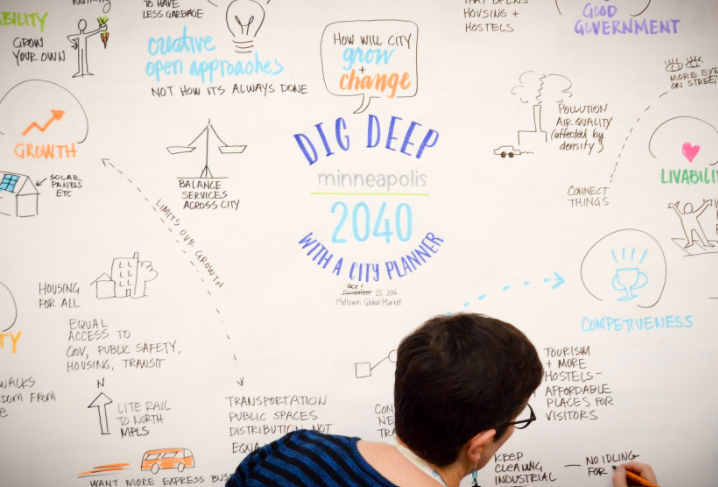 ABILITY
GROW
YOUR OWN
TO HAVE
LESS GARBAGE
creative
open approaches
NOT HOW ITS ALWAYS DONE
HOW WILL CITY
grow
+
change
HOUSING +
HOSTELS
GOOD
GOVERNMENT
MORE EYE
ON STREET
POLLUTION
AIR QUALITY
(affected by
density)
CONNECT
THINGS
LIVABILIT
GROWTH
SOLAR
PANELS
ETC
BALANCE
SERVICES
ACROSS CITY
LIMITS OUR GROWTH
DIG DEEP
minneapolis
2040
WITH A CITY PLANNER
OCT
November 25, 2016
Midtown Global Market
HOUSING
FOR ALL
EQUAL
ACCESS TO
GOV, PUBLIC SAFETY,
HOUSING, TRANSIT
TY
WALKS
DOM FROM
N
LITE RAIL
TO NORTH
MPLS
WANT MORE EXPRESS BUS
TRANSPORTATION
PUBLIC SPACES
DISTRIBUTION NOT
EQUA
CON
NE
TRA
COMPETIVENESS
TOURISM
+ MORE
HOSTELS-
AFFORDABLE
PLACES FOR
VISITORS
KEEP
CLEANING
INDUSTRIAL
— NO IDLING
FOR